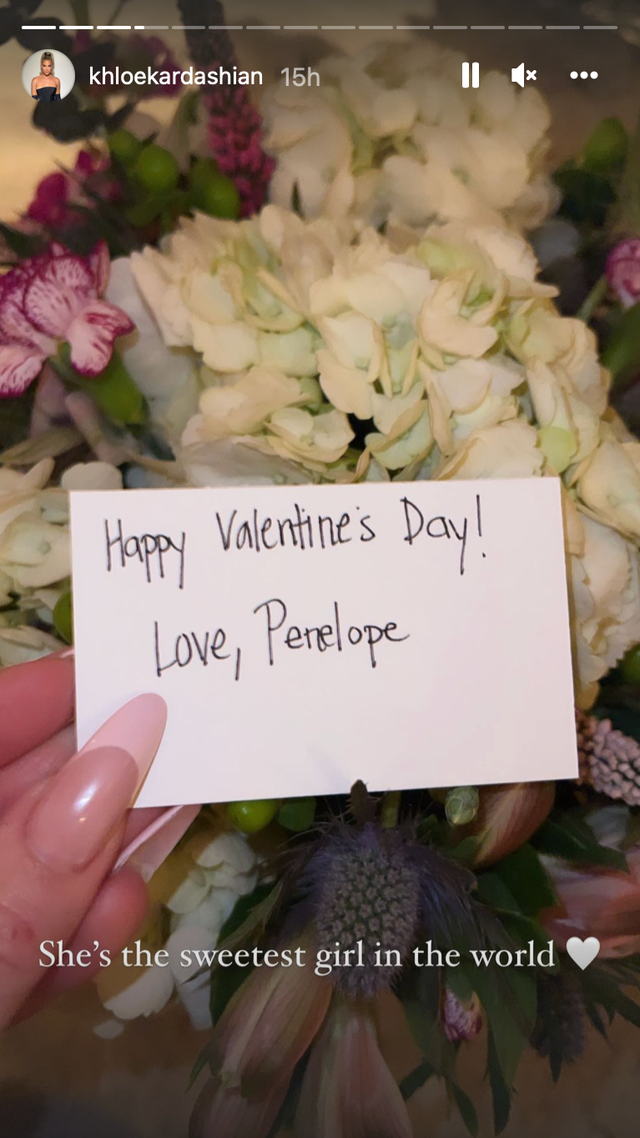 khloekardashian 15h
Happy Valentine's Day!
Love, Penelope
She's the sweetest girl in the world 🤍